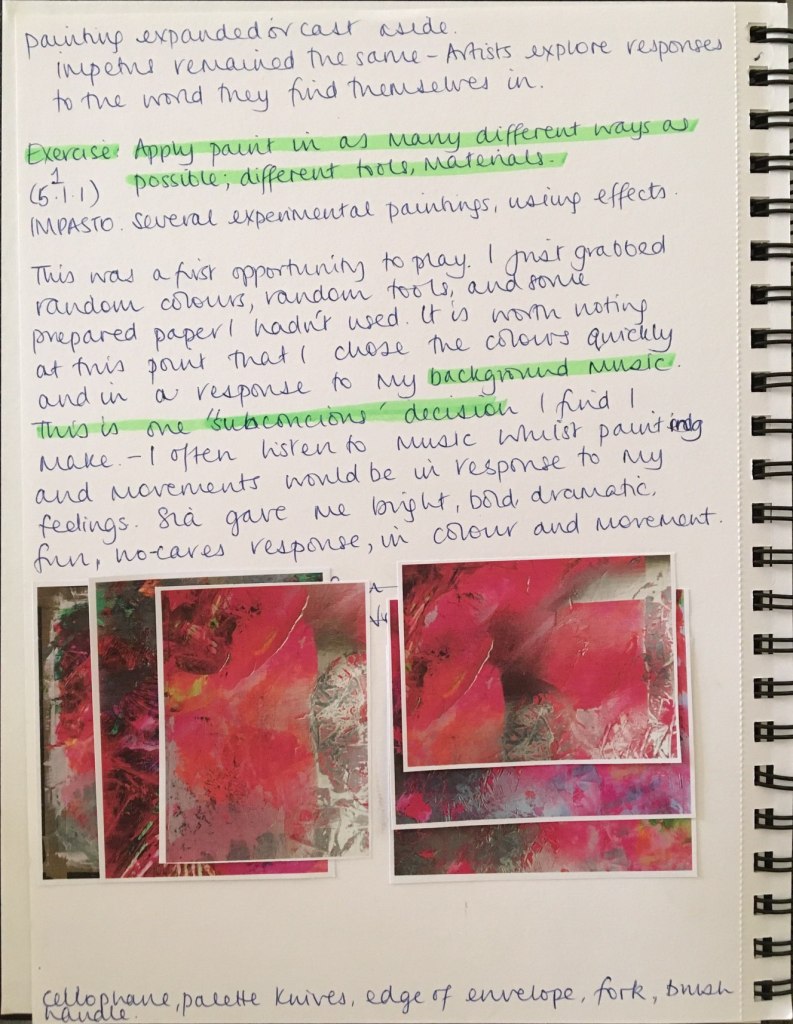 painting expanded or cast aside.
Impetus remained the same - Artists explore responses
to the world they find themselves in.
Exercise: Apply paint in as many different ways as
possible; different tools, materials.
(5.1.1) 1
IMPASTO. Several experimental paintings, using effects.
This was a first opportunity to play. I just grabbed
random colours, random tools, and some
prepared paper I hadn't used. It is worth noting
at this point that I chose the colours quickly
and in a response to my background music.
This is one "subconcious" decision I find I
make. - I often listen to music whilst painting
and movements would be in response to my
feelings. Sia gave me bright, bold, dramatic,
fun, no-cares response, in colour and movement.
cellophane, palette knives, edge of envelope, fork, brush
handle.